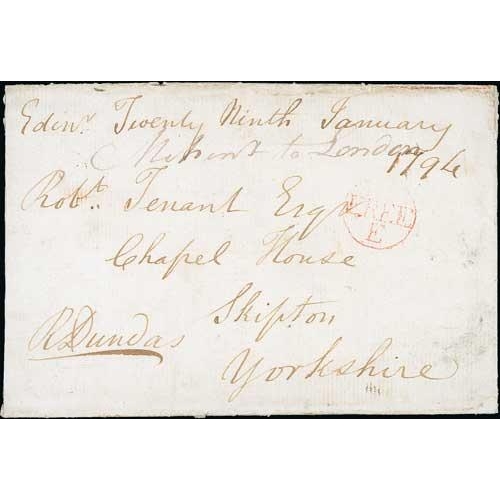 Edinr. Twenty Ninth January
Missent to London
1794
Robt. Tenant Esqr.
FREE
E
Chapel House
Skipton
RDundas
Yorkshire